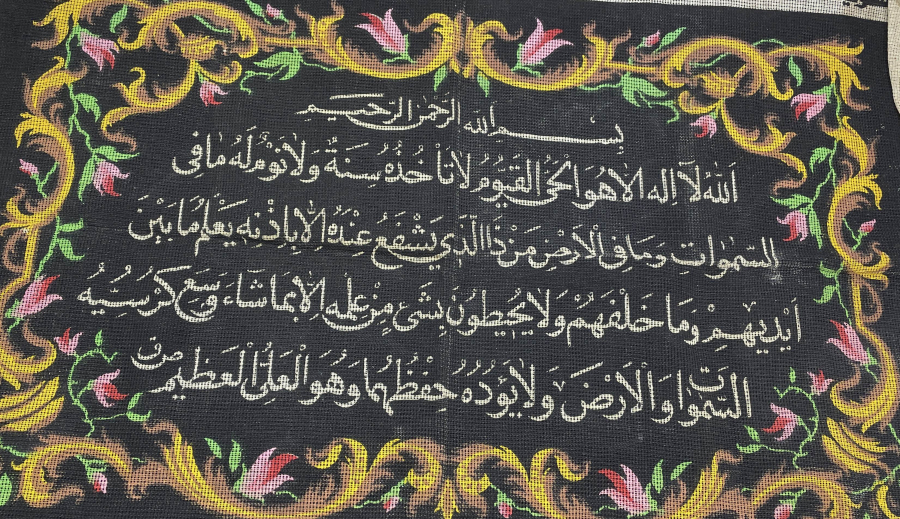 بسم الله الرحمن الرحيم
اَللهُ لَآ اِله الاهُوَ الحَیُّ القَيُّوُم لاتاَ خُذُهُ سِنَةٌ وَلاَنَوْمٌ لَهُ مَا فِی
السَّمٰوٰات وَمَا فِی الْاَرْضِ مَنْ ذَا الَّذي يَشْفَعُ عِنْدَهُ الاٰبِاِذْنِه يَعْلَمُ مَا بَيْنَ
اَيْديهِمْ وَمَا خَلْفَهُمْ وَلايُحيطوُنَ بِشَیْءٍ مِنْ عِلْمِهِ اِلاّٰبِمَا شَآءَ وَسِعَ كُرْسِيُّهُ
السَّمٰوٰات وَالْاَرْضَ وَلايَؤُدُهُ حِفْظُهُمٰا وَهُوَ الْعَلِیُّ الْعَظيم